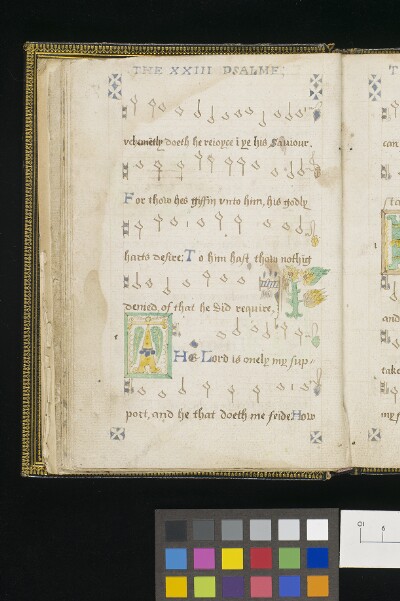 THE XXIII PSALME,
T
vehemētly doeth he reioyce ī ye his Saviour.
For thow hes giffin vnto him, his godly
harts desire: To him hast thow nothīg
denied, of that he did require.
THe Lord is onely my sup-
port, and he that doeth me feide: How
con
and
take
my s